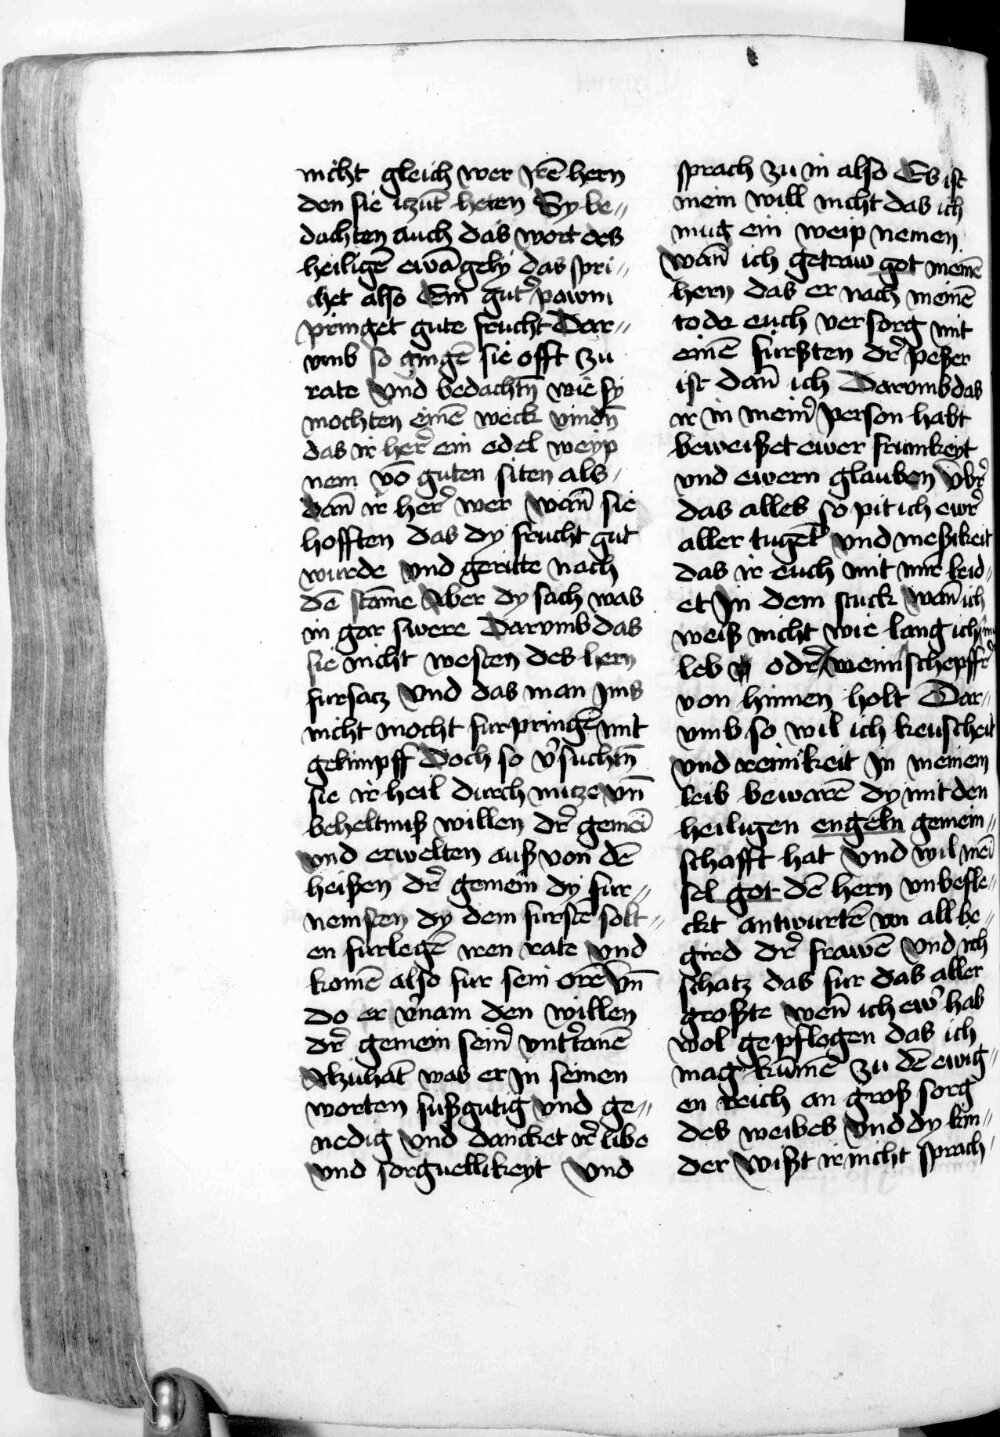 nicht gleich wer irē hern
den sie iczūt heten Sy be„
dachten auch das wort des
heiligē ewāgelij das spri„
chet also Ein gut᷑ pawm
pringet gute frucht Dar„
vmb so gingē sie offt zu
rate vnd bedachtn̄ wie sy
mochten einē weck vindn̄
das ir her᷑ ein edel weyp
nem vō guten siten als
dan̄ ir her᷑ wer wan̄ sie
hofften das dy frucht gut
wurde vnd geritte nach
dē stāme Aber dy sach was
in gar swere Darvmb das
sie nicht westen des hern
fursacz vnd das man Ims
nicht mocht furpringē mit
gelimpff Doch so v᷑suchtn̄
sie ir heil durch nucze vn̄
beheltniß willen dr᷑ gemeī
vnd erwelten auß von dē
heißen dr᷑ gemein dy fur„
nemsten dy dem furstē solt„
en furlegē iren rate vnd
komē also fur sein orē vn̄
do er v᷑nam den willen
dr᷑ gemein sein᷑ vnt᷑tanē
Alzuhāt was er in seinen
worten sußgutig vnd ge„
nedig vnd dancket ir᷑ libe
vnd sorguellikeyt vnd
sprach zu in also Es ist
mein will nicht das ich
mug ein weip nemen
wan̄ ich getraw got meinē
hern das er nach meinē
tode euch versorg mit
einē fursten dr᷑ peßer
ist dan̄ ich Darvmb das
ir in mein᷑ person habt
beweißet ewer frumkeyt
vnd ewern glauben vb᷑r
das alles so pit ich ewr᷑
aller tugēt vnd meßikeit
das ir euch mit mir leid„
et In dem stuck wan̄ ich
weiß nicht wie lang ich
leb odr᷑ wenn schepff᷑r
von hinnen holt Dar„
vmb so wil ich keuscheit
vnd reinikeit in meinem
leib bewarē dy mit den
heiligen engeln gemein„
schafft hat vnd wil mei
sel got dē hern vnbefle„
ckt antwurtē vn all be„
gird dr᷑ frawē vnd ich
schatz das fur das aller
großte wen̄ ich ew᷑ hab
wol gepflogen das ich
mag kūmē zu dē ewig„
en reich an groß sorg
des weibes vnd dy kin„
der wißt ir nicht sprach